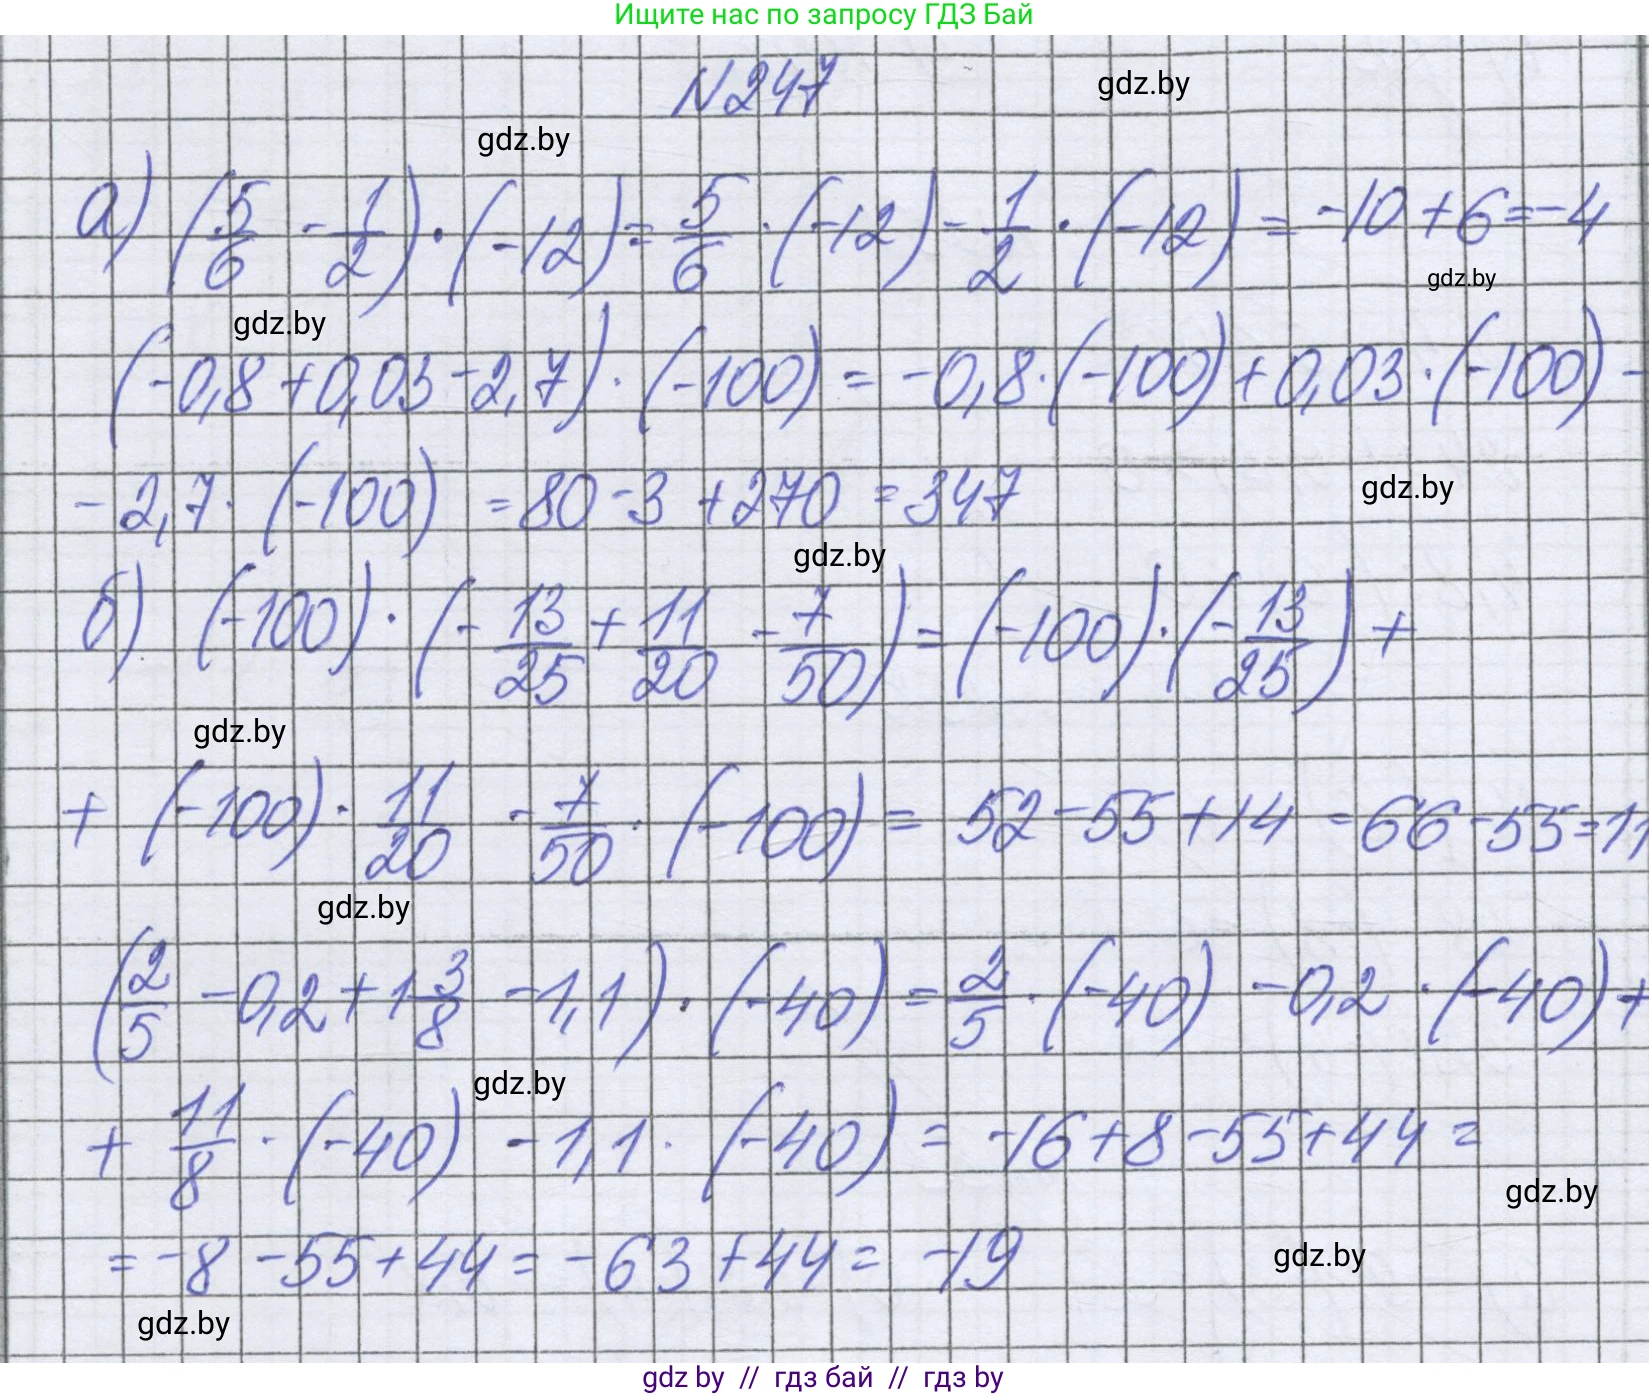 Ищите нас по запросу ГДЗ Бай
N247
gdz.by
gdz.by
а) (5/6 - 1/2) · (-12) = 5/6 · (-12) - 1/2 · (-12) = -10 + 6 = -4
gdz.by
gdz.by
(-0,8 + 0,03 - 2,7) · (-100) = -0,8 · (-100) + 0,03 · (-100) -
- 2,7 · (-100) = 80 - 3 + 270 = 347
gdz.by
gdz.by
б) (-100) · (-13/25 + 11/20 - 7/50) = (-100) · (-13/25) +
gdz.by
+ (-100) · 11/20 - 7/50 · (-100) = 52 - 55 + 14 = 66 - 55 = 11
gdz.by
(2/5 - 0,2 + 1 3/8 - 1,1) · (-40) = 2/5 · (-40) - 0,2 · (-40) +
gdz.by
+ 11/8 · (-40) - 1,1 · (-40) = -16 + 8 - 55 + 44 =
gdz.by
= -8 - 55 + 44 = -63 + 44 = -19
gdz.by
gdz.by
gdz by // гдз бай // гдз by